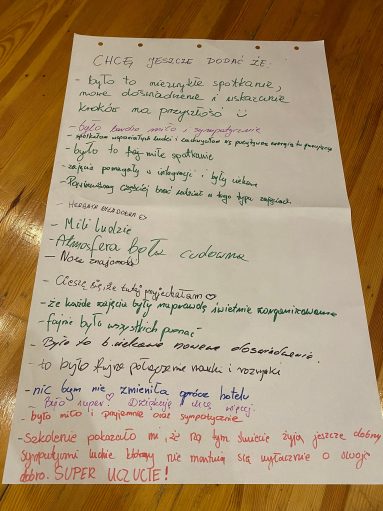 CHCĘ JESZCZE DODAĆ ŻE:
- było to niezwykłe spotkanie,
nowe doświadczenie i wskazanie
kroków na przyszłość
- było bardzo miło i sympatycznie
- spotkałam wspaniałych ludzi i zachwyciłam się pozytywną energią
- było to fajne miłe spotkanie
- zajęcia pomagały w integracji i były ciekawe
- Powinniśmy częściej brać udział w tego typu zajęciach.
- HERBATA BYŁA DOBRA
- Mili ludzie
- Atmosfera była cudowna
- Nowe znajomości
- Cieszę się, że tutaj przyjechałam
- że każde zajęcia były naprawdę świetnie zorganizowane
- fajnie było wszystkich poznać
- Było to b. ciekawe nowe doświadczenie.
- to było fajne połączenie nauki i rozrywki
- nic bym nie zmieniła oprócz hotelu
Było super Dziękuję chcę więcej.
- było miło i przyjemnie oraz sympatycznie
- Szkolenie pokazało mi, że na tym świecie żyją jeszcze dobrzy
sympatyczni ludzie którzy nie martwią się wyłącznie o swoje
dobro. SUPER UCZUCIE!